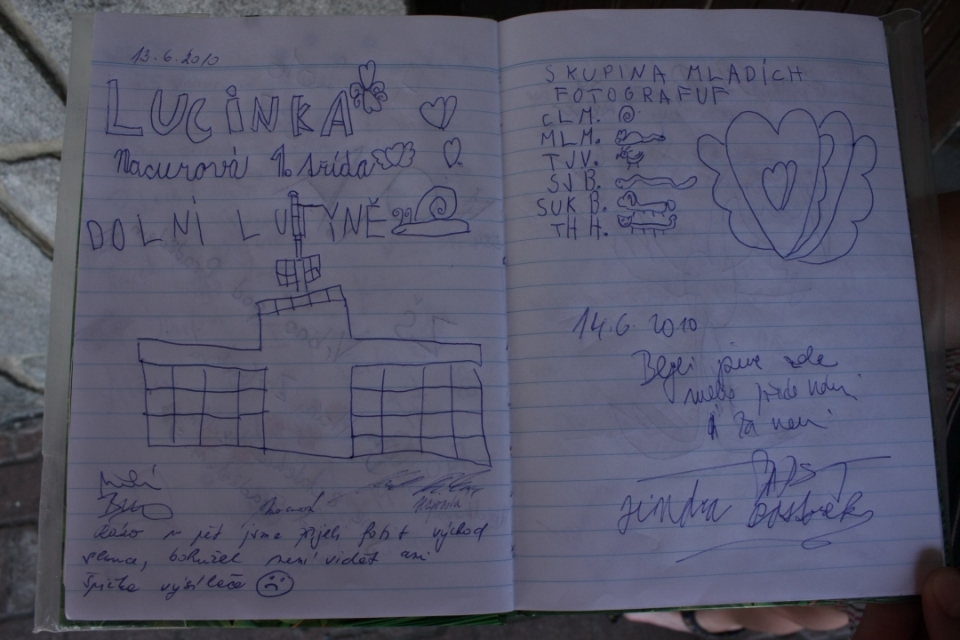 13.6.2010
LUCINKA
Macurová 1. třída
DOLNÍ LUTYNĚ
ráno v pět jsme přijeli fotit východ
slunce, bohužel není vidět ani
špička vysílače
SKUPINA MLADÍCH
FOTOGRAFUF
CLM.
MLM.
TJV.
SVB.
SUK B.
TH H.
14.6.2010
Byli jsme zde
nebe před námi
A za námi
Jindra